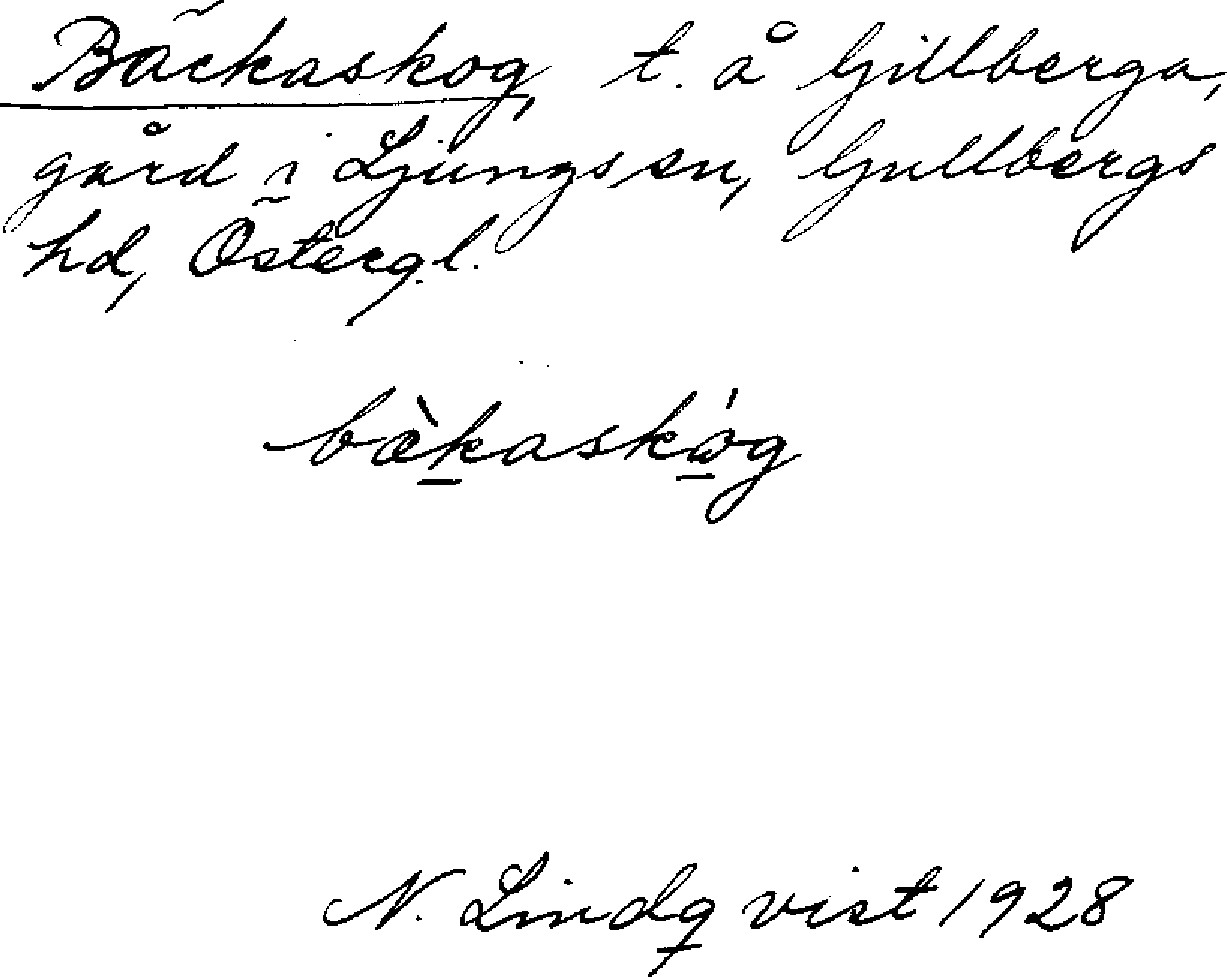 Bäckaskog, t. å Gillberga,
gård i Ljungs sn, Gullbergs
hd, Östergl.
bæ̀kaskóg
N. Lindqvist 1928